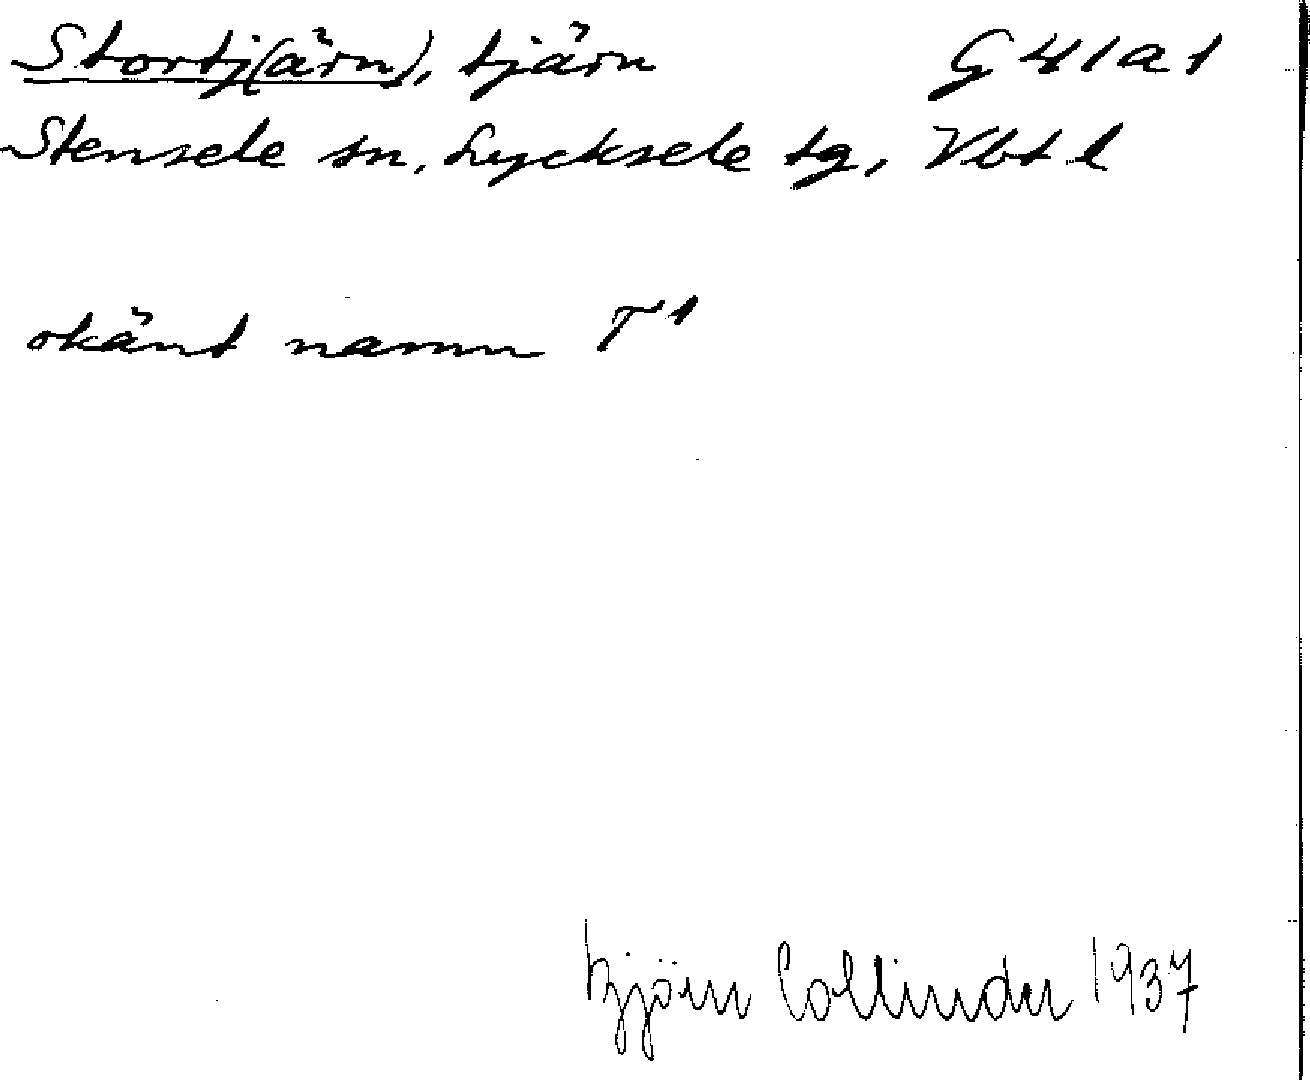 Stortj(ärn), tjärn G 41 a 1
Stensele sn, Lycksele tg, Vbt l
okänt namn T1
Björn Collinder 1937